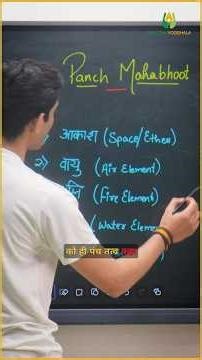 Panch Mahabhoot
आकाश (Space/Ether)
2) वायु (Air Element)
(Fire Element)
(Water Eleme
को ही पंच तत्व